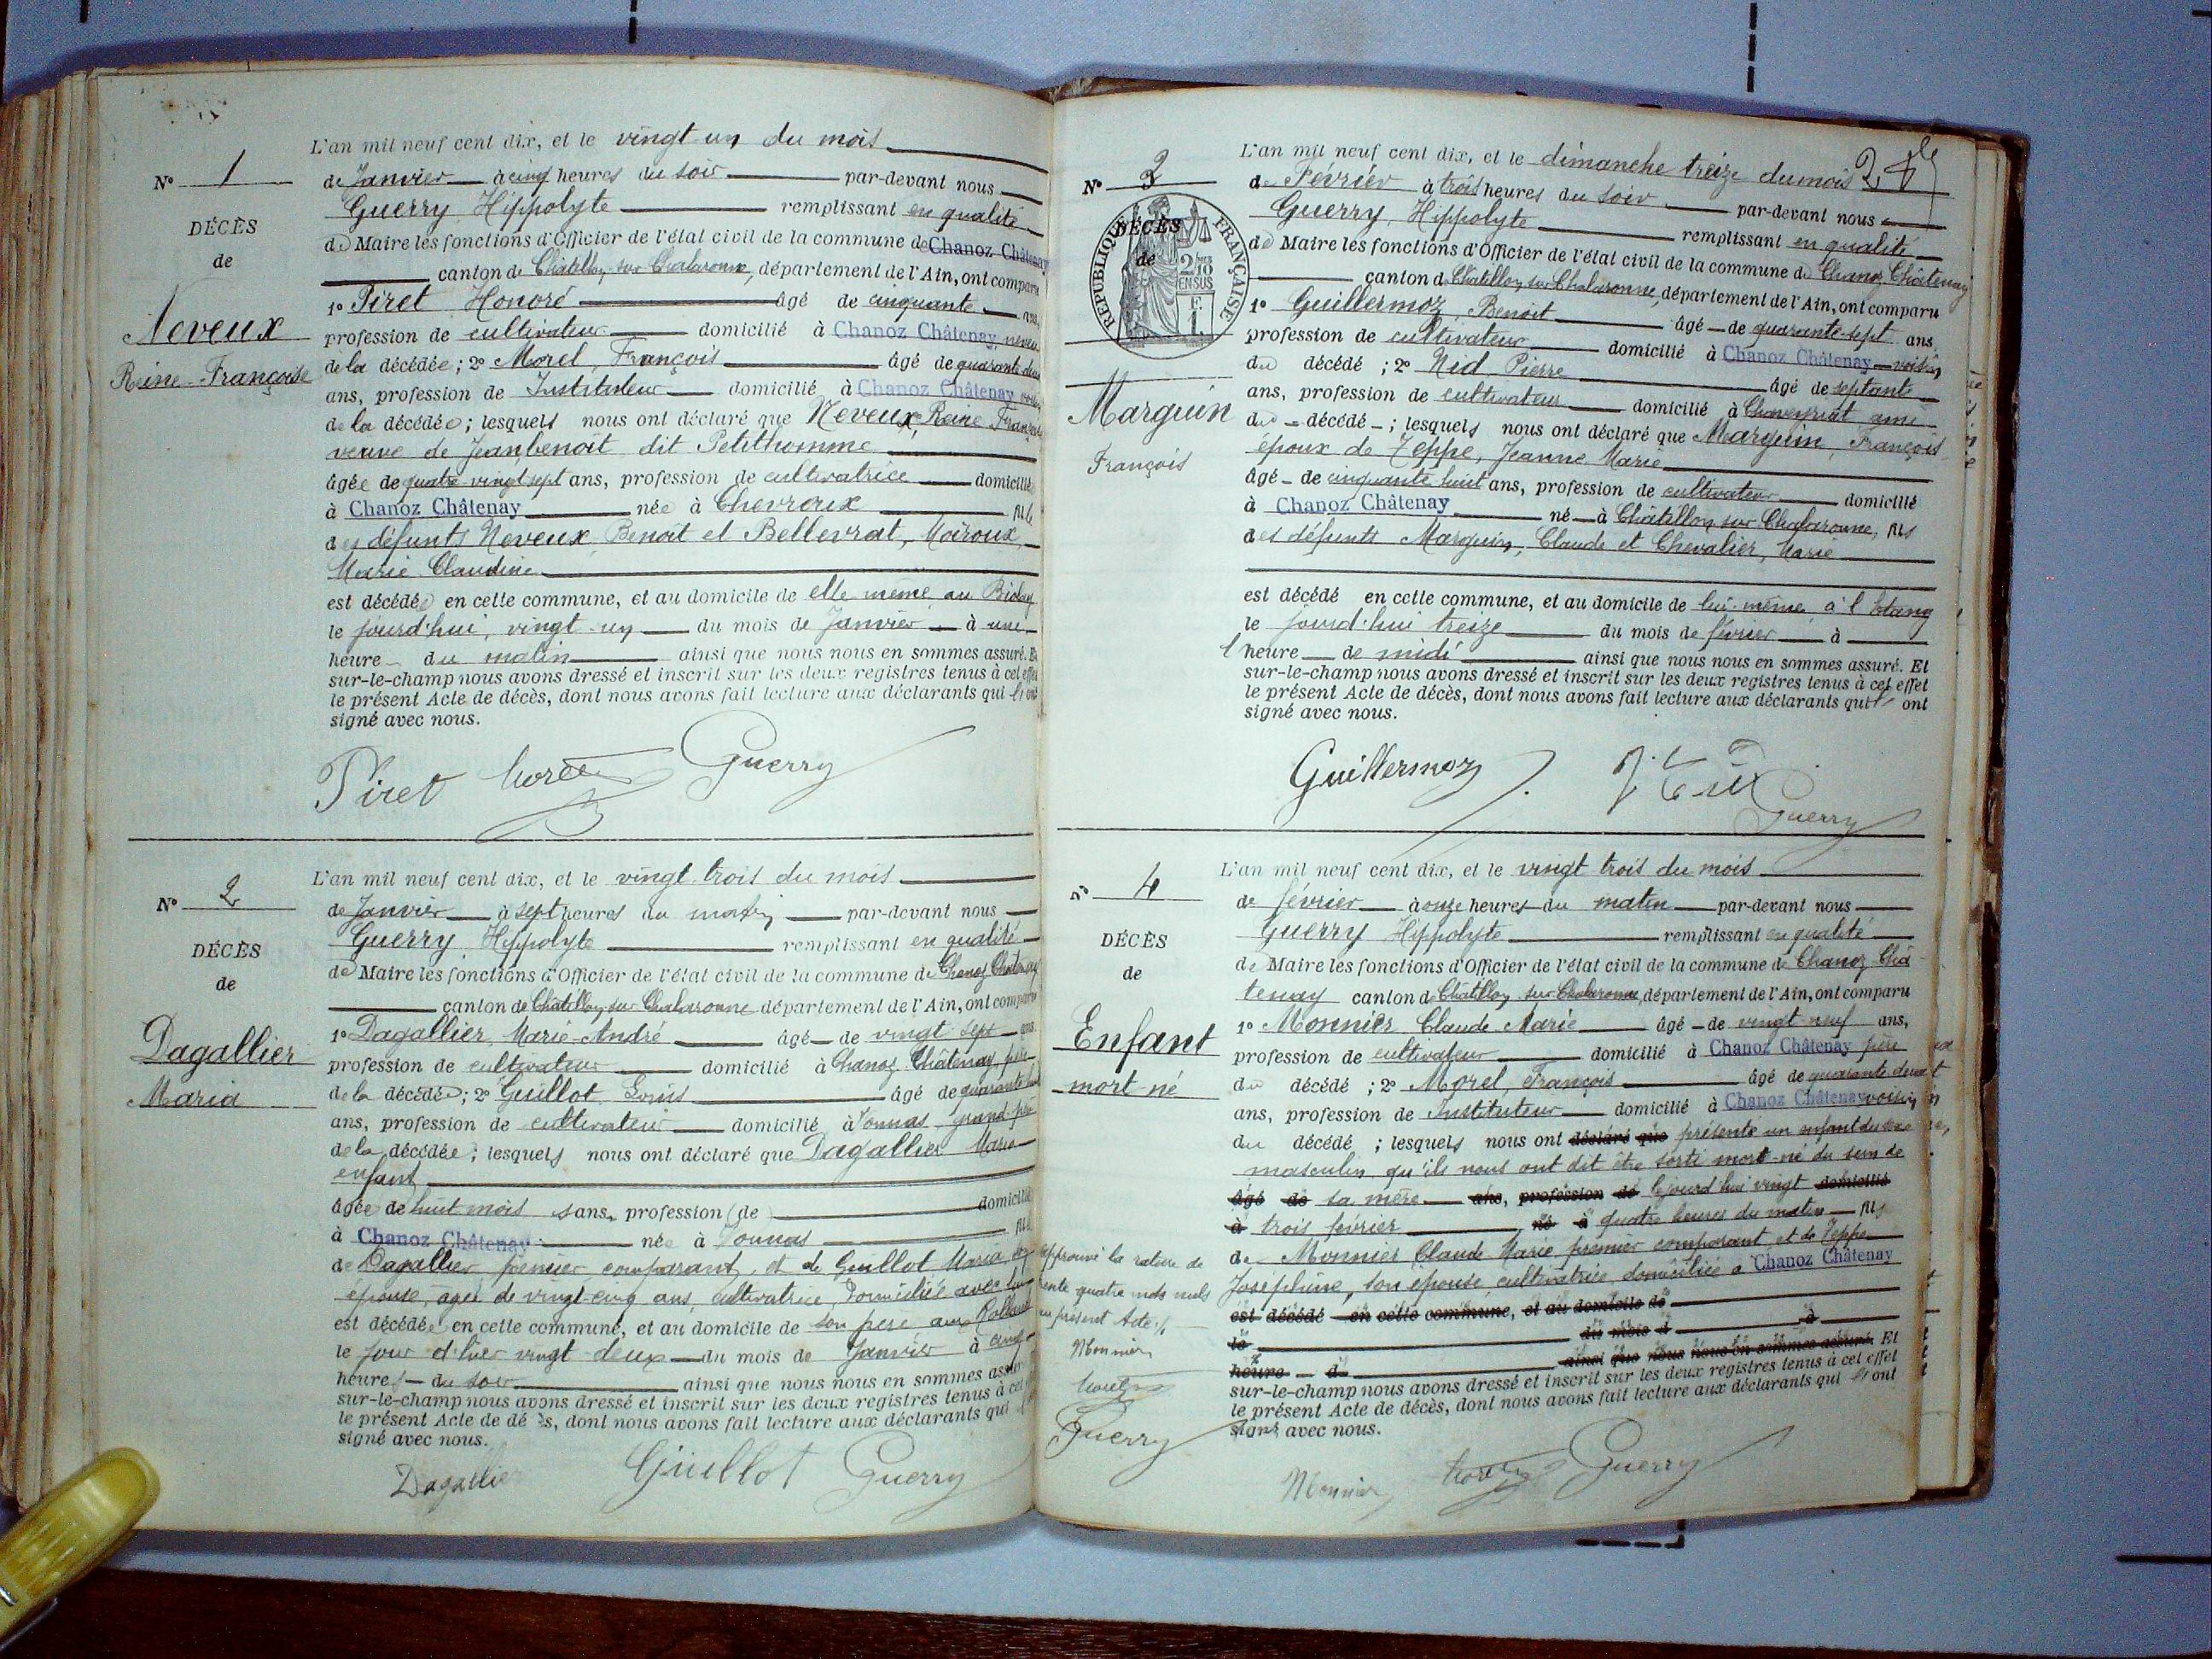 N° 1
DÉCÈS
de
Neveux
Reine-Françoise
L'an mil neuf cent dix, et le vingt-un du mois
de Janvier à cinq heures du soir par-devant nous
Guerry, Hippolyte remplissant en qualité
de Maire les fonctions d'Officier de l'état civil de la commune de Chanoz Châtenay
canton de Châtillon sur Chalaronne, département de l'Ain, ont comparu
1° Piret Honoré âgé de cinquante ans,
profession de cultivateur domicilié à Chanoz Châtenay neveu
de la décédée; 2° Morel, François âgé de quarante deux
ans, profession de Instituteur domicilié à Chanoz Châtenay voisin
de la décédée; lesquels nous ont déclaré que Neveux, Reine Françoise
veuve de Jeanbenoît dit Petithomme
âgée de quatre-vingt sept ans, profession de cultivatrice domiciliée
à Chanoz Châtenay née à Chevroux fille
des défunts Neveux, Benoît et Bellevrat, Moiroux,
Marie Claudine
est décédée en cette commune, et au domicile de elle même, au Biolay
le jourd'hui, vingt-un du mois de Janvier à une
heure du matin ainsi que nous nous en sommes assuré. Et
sur-le-champ nous avons dressé et inscrit sur les deux registres tenus à cet effet
le présent Acte de décès, dont nous avons fait lecture aux déclarants qui l'ont
signé avec nous.
Piret Morel Guerry
N° 2
DÉCÈS
de
Dagallier
Maria
L'an mil neuf cent dix, et le vingt trois du mois
de Janvier à sept heures du matin par-devant nous
Guerry Hippolyte remplissant en qualité
de Maire les fonctions d'Officier de l'état civil de la commune de Chanoz Châtenay
canton de Châtillon sur Chalaronne département de l'Ain, ont comparu
1° Dagallier, Marie-André âgé de vingt sept ans
profession de cultivateur domicilié à Chanoz Châtenay, père
de la décédée; 2° Guillot Louis âgé de quarante
ans, profession de cultivateur domicilié à Vonnas grand-père
de la décédée; lesquels nous ont déclaré que Dagallier Maria
enfant
âgée de huit mois sans profession (de domicilié
à Chanoz Châtenay née à Vonnas fille
de Dagallier premier comparant, et de Guillot Maria, son
épouse, âgée de vingt-cinq ans, cultivatrice, domiciliée avec lui
est décédée en cette commune, et au domicile de son père aux Rollands
le jour d'hier vingt-deux du mois de Janvier à cinq
heures du soir ainsi que nous nous en sommes assuré
sur-le-champ nous avons dressé et inscrit sur les deux registres tenus à cet
le présent Acte de décès, dont nous avons fait lecture aux déclarants qui
signé avec nous.
Dagallier Guillot Guerry
N° 3
DÉCÈS
de
RÉPUBLIQUE FRANÇAISE
2/10
EN SUS
Marguin
François
L'an mil neuf cent dix, et le dimanche treize du mois
de Février à trois heures du soir par-devant nous
Guerry, Hippolyte remplissant en qualité
de Maire les fonctions d'Officier de l'état civil de la commune de Chanoz Châtenay
canton de Châtillon sur Chalaronne, département de l'Ain, ont comparu
1° Guillermoz, Benoit âgé de quarante-sept ans,
profession de cultivateur domicilié à Chanoz Châtenay voisin
du décédé; 2° Nid Pierre âgé de septante
ans, profession de cultivateur domicilié à Chaveyriat ami
du décédé; lesquels nous ont déclaré que Marguin, François
époux de Zeppe, Jeanne Marie
âgé de cinquante huit ans, profession de cultivateur domicilié
à Chanoz Châtenay né à Châtillon sur Chalaronne, fils
des défunts Marguin, Claude et Chevalier, Marie
est décédé en cette commune, et au domicile de lui-même, à l'Etang
le jourd'hui treize du mois de février à
1 heure de midi ainsi que nous nous en sommes assuré. Et
sur-le-champ nous avons dressé et inscrit sur les deux registres tenus à cet effet
le présent Acte de décès, dont nous avons fait lecture aux déclarants qui l' ont
signé avec nous.
Guillermoz
Guerry
N° 4
DÉCÈS
de
Enfant
mort-né
L'an mil neuf cent dix, et le vingt trois du mois
de février à onze heures du matin par-devant nous
Guerry Hippolyte remplissant en qualité
de Maire les fonctions d'Officier de l'état civil de la commune de Chanoz Châ-
tenay canton de Châtillon sur Chalaronne, département de l'Ain, ont comparu
1° Monnier Claude Marie âgé de vingt-neuf ans,
profession de cultivateur domicilié à Chanoz Châtenay père
du décédé; 2° Morel, François âgé de quarante deux
ans, profession de Instituteur domicilié à Chanoz Châtenay voisin
du décédé; lesquels nous ont déclaré que présenté un enfant du sexe
masculin qu'ils nous ont dit être sorti mort-né du sein de
âgé de sa mère ans, profession de lejourd'hui vingt domicilié
à trois février né à quatre heures du matin fils
de Monnier Claude Marie premier comparant, et de Zeppe
Josephine, son épouse, cultivatrice, domiciliée à Chanoz Châtenay
est décédé en cette commune, et au domicile de
le du mois d à
heure d ainsi que nous nous en sommes assuré. Et
sur-le-champ nous avons dressé et inscrit sur les deux registres tenus à cet effet
le présent Acte de décès, dont nous avons fait lecture aux déclarants qui l'ont
signé avec nous.
Approuvé la rature de
trente quatre mots nuls
au présent Acte
Monnier
Morel
Guerry
Monnier Morel Guerry